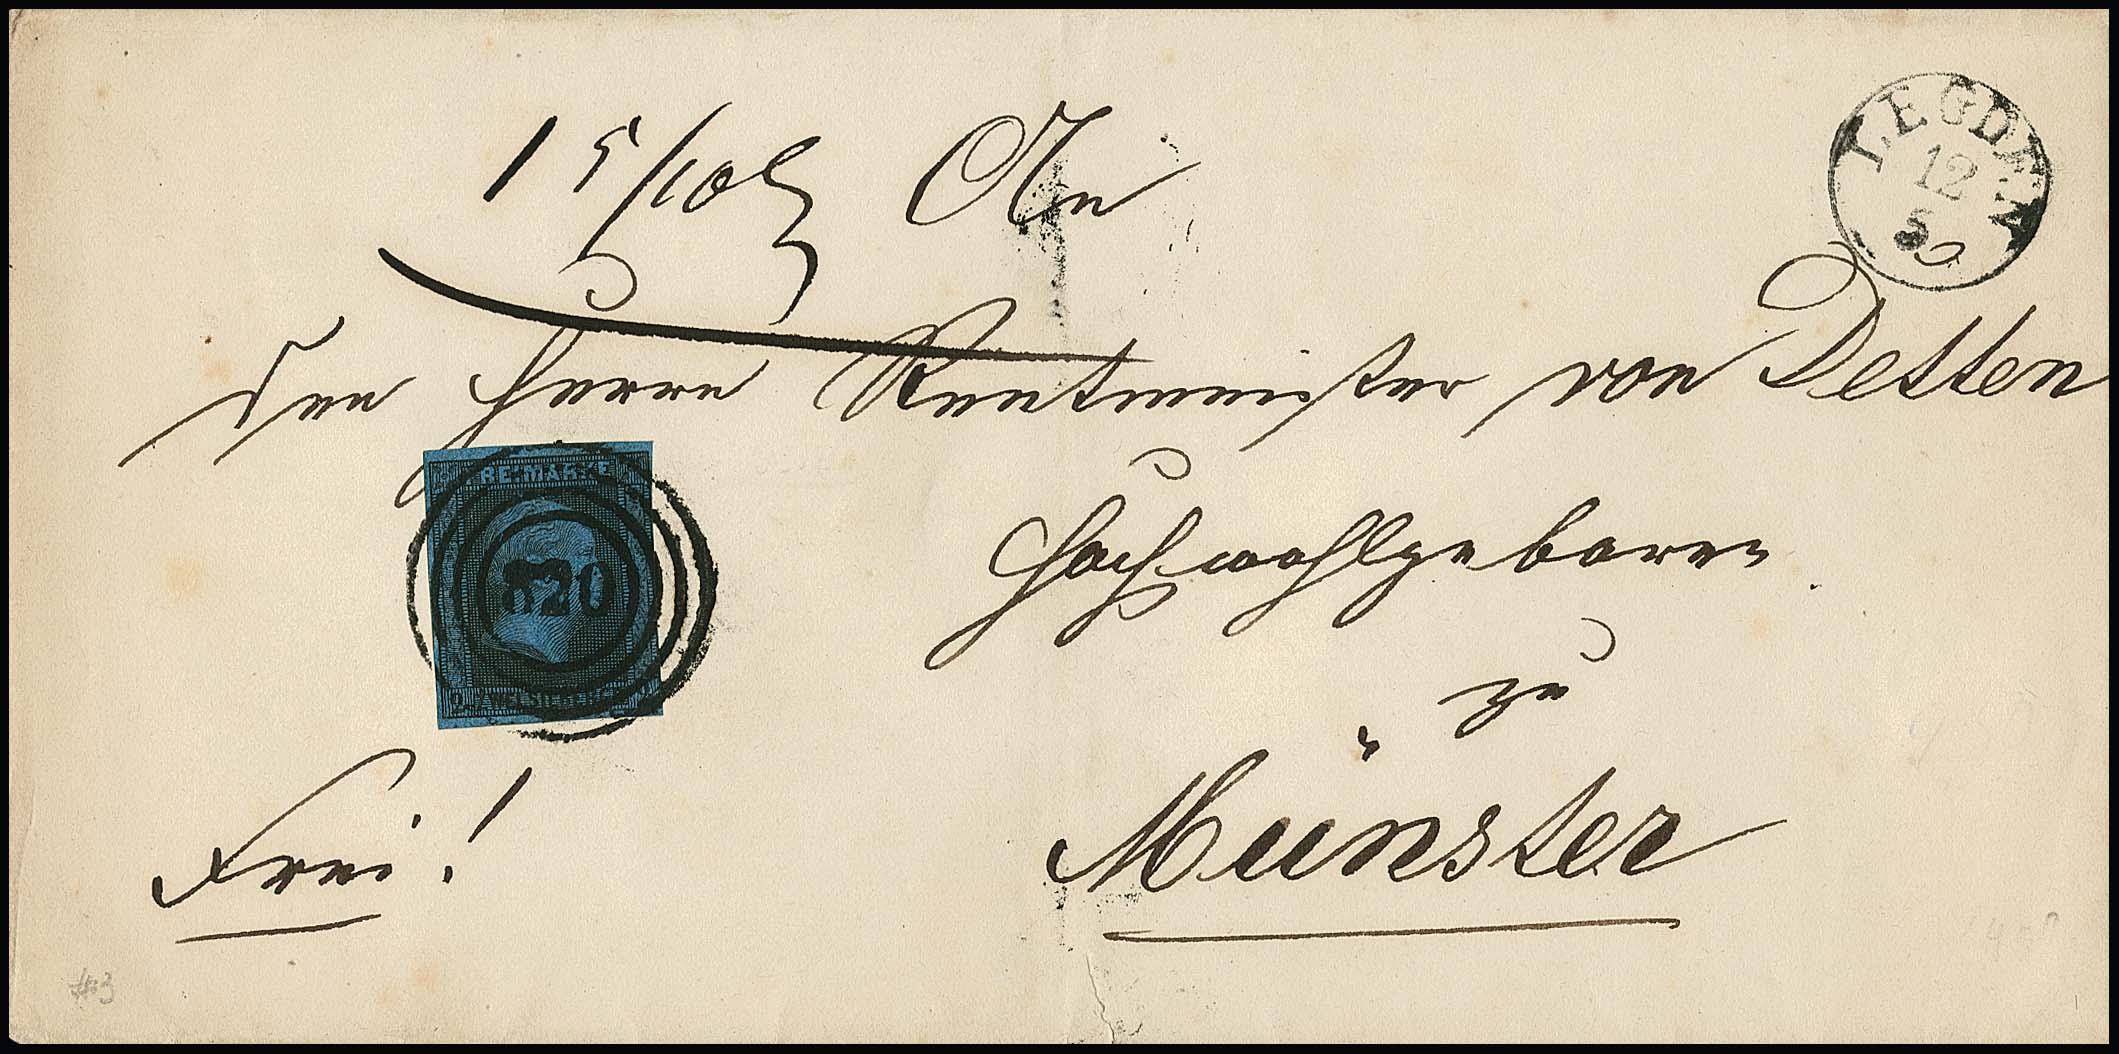 LEGDEN
12
5
1 5/10
den Herrn Rentmeister von Detten
FREIMARKE
870
2 ZWEI SILBERGR. 2
Hochwohlgeboren
zu
Münster
Frei!
#3